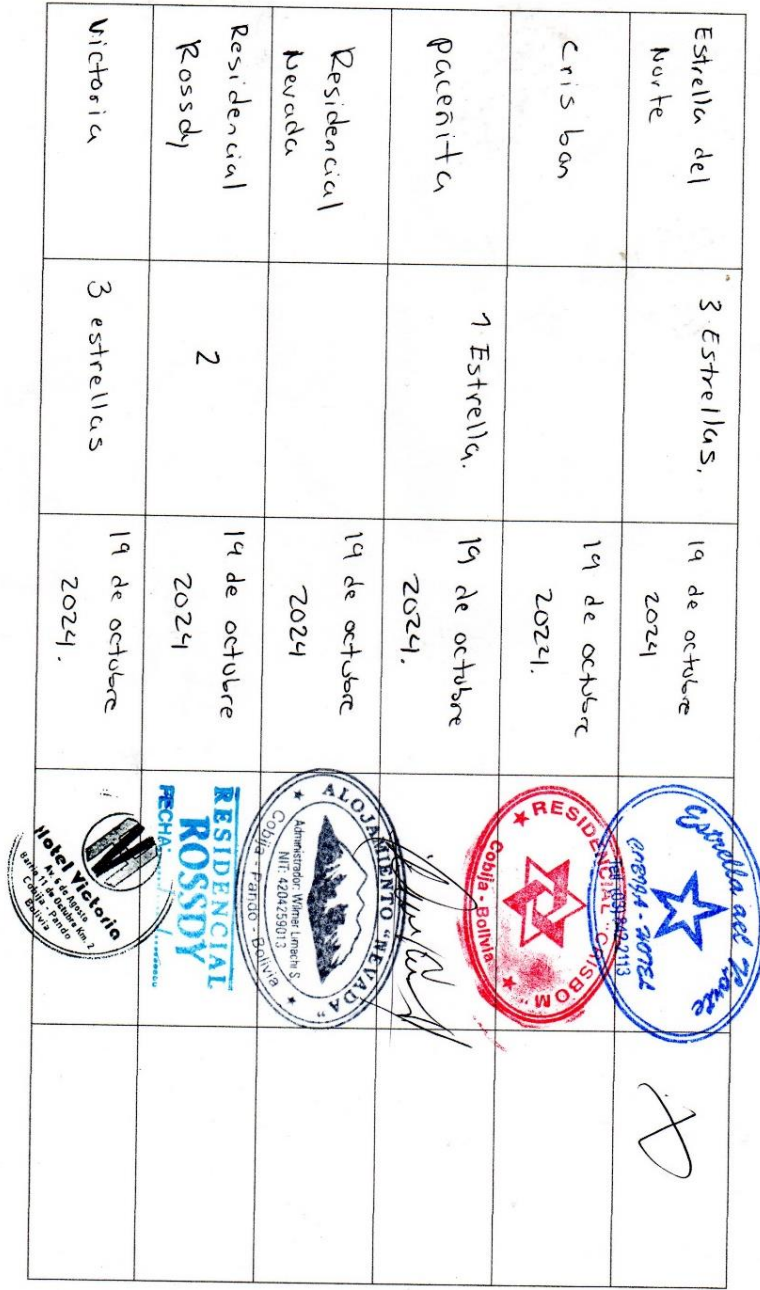 Estrella del
Norte
3 Estrellas,
19 de octubre
2024
Estrella del Norte
COBIJA - HOTEL
Cris bon
19 de octubre
2024.
RESIDENCIAL "CRISBOM"
Cobija - Bolivia
paceñita
1 Estrella.
19 de octubre
2024.
Residencial
Nevada
19 de octubre
2024
ALOJAMIENTO "NEVADA"
Administrador: Wilmer Limachi S
NIT: 4204259013
Cobija - Pando - Bolivia
Residencial
Rossdy
2
19 de octubre
2024
RESIDENCIAL
ROSSDY
FECHA
Victoria
3 estrellas
19 de octubre
2024.
Hotel Victoria
Av. 6 de Agosto
Barrio 11 de Octubre Km. 2
Cobija - Pando
Bolivia